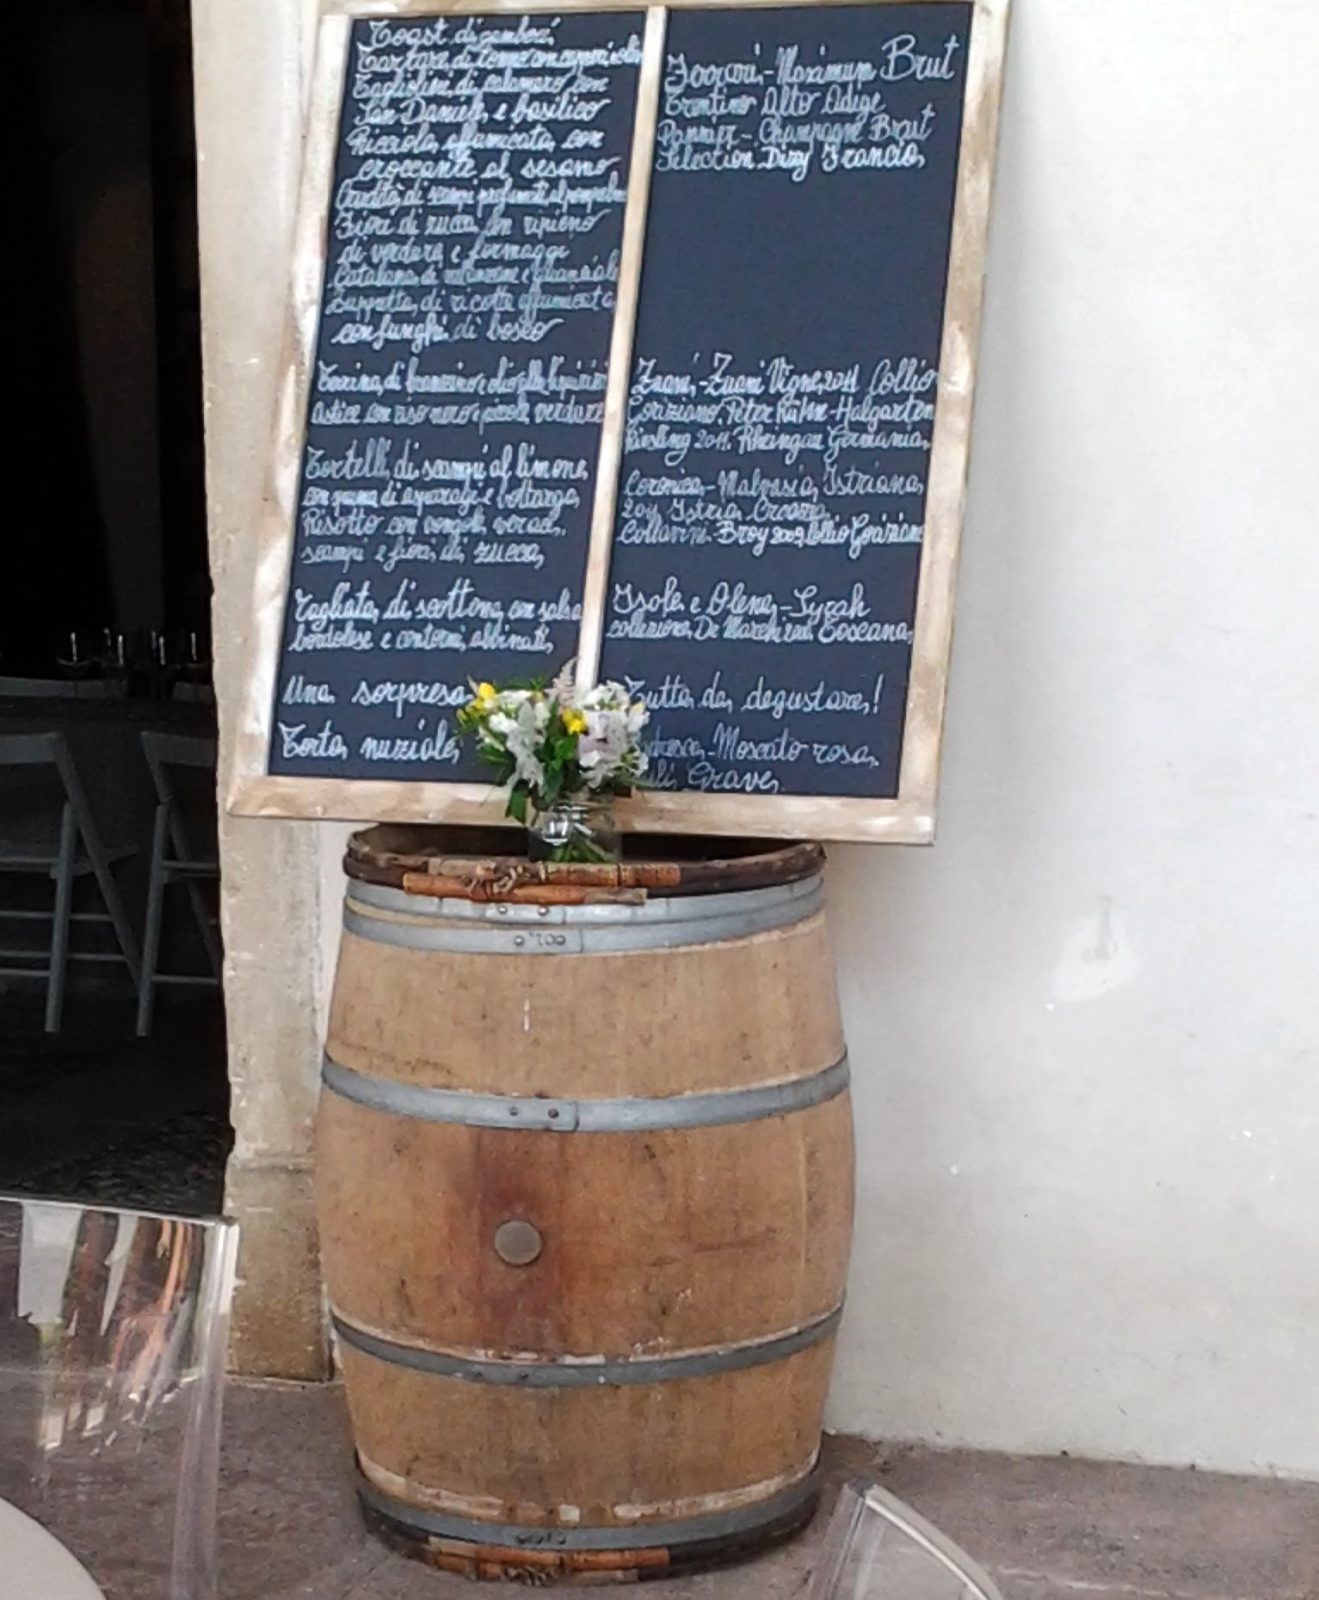 Toast di gamberi
Tartare di tonno con capperi e olive
Tagliolini di calamaro con
San Daniele e basilico
Ricciola affumicata con
croccante al sesamo
Crudità di scampi profumati al pompelmo
Fiori di zucca con ripieno
di verdure e formaggi
Catalana di melanzane e guanciale
Zuppetta di ricotta affumicata
con funghi di bosco
Terrina di branzino e olio alle
astice con riso nero e piccole verdure
Tortelli di scampi al limone
con punte di asparagi e bottarga
Risotto con vongole veraci,
scampi e fiori di zucca
Tagliata di scottona con salsa
bordolese e contorni abbinati
Una sorpresa
Torta nuziale
Ferrari - Maximum Brut
Trentino Alto Adige
Pannier - Champagne Brut
Selection Dizy Francia
Zuani - Zuani Vigne 2011 Collio
Goriziano. Peter Kühn - Halgarten
Riesling 2011. Rheingau Germania
Coronica - Malvasia Istriana
2011 Istria Croazia
Collavini Broy 2009 Collio Goriziano
Isole e Olena - Syrah
collezione De Marchi Toscana
Tutta da degustare!
- Moscato rosa
Grave